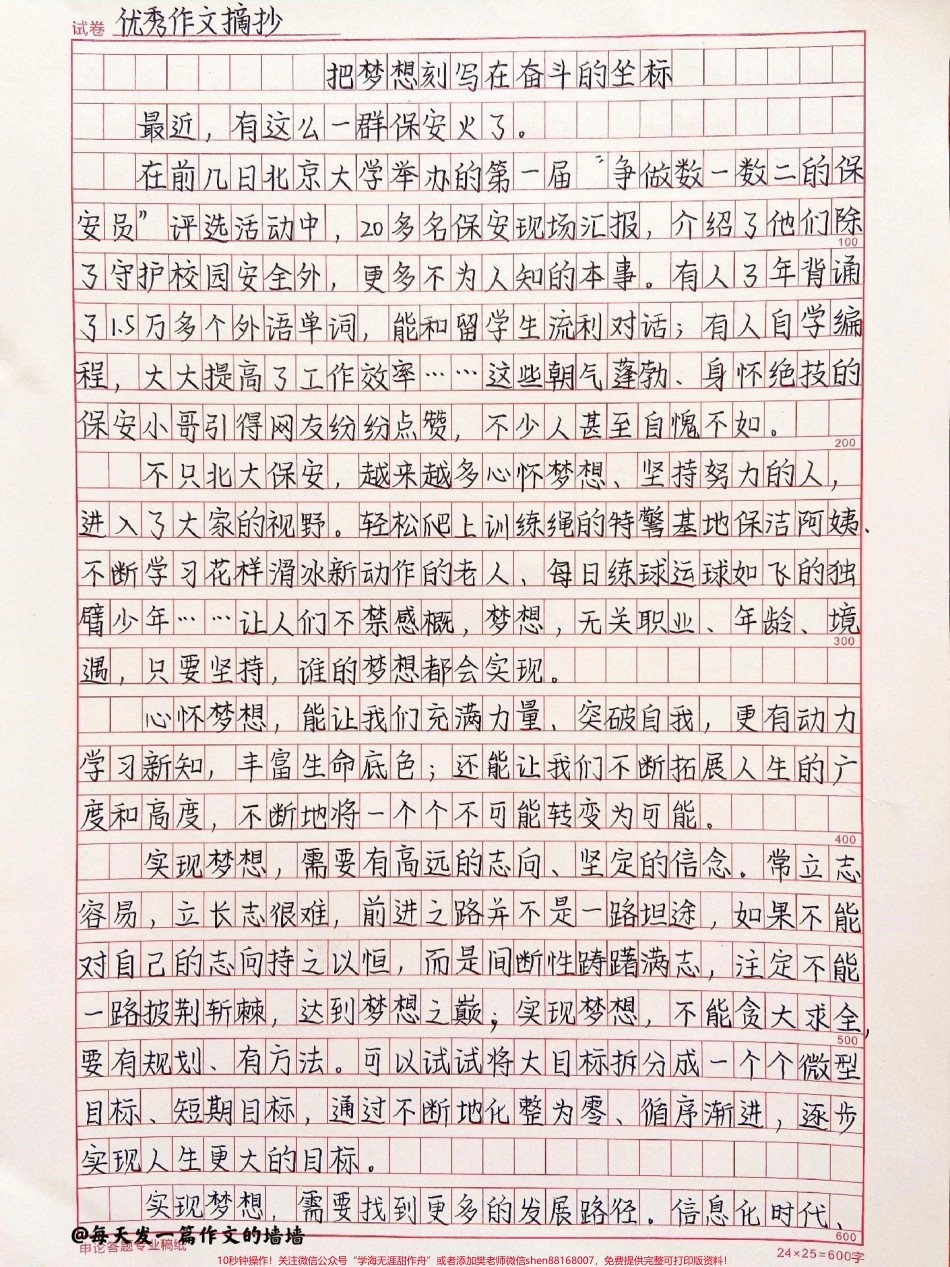 试卷 优秀作文摘抄
把梦想刻写在奋斗的坐标
最近，有这么一群保安火了。
在前几日北京大学举办的第一届“争做数一数二的保
安员”评选活动中，20多名保安现场汇报，介绍了他们除
100
了守护校园安全外，更多不为人知的本事。有人了年背诵
了1.5万多个外语单词，能和留学生流利对话；有人自学编
程，大大提高了工作效率……这些朝气蓬勃、身怀绝技的
保安小哥引得网友纷纷点赞，不少人甚至自愧不如。
200
不只北大保安，越来越多心怀梦想、坚持努力的人，
进入了大家的视野。轻松爬上训练绳的特警基地保洁阿姨、
不断学习花样滑冰新动作的老人、每日练球运球如飞的独
臂少年……让人们不禁感概，梦想，无关职业、年龄、境
300
遇，只要坚持，谁的梦想都会实现。
心怀梦想，能让我们充满力量、突破自我，更有动力
学习新知，丰富生命底色；还能让我们不断拓展人生的广
度和高度，不断地将一个个不可能转变为可能。
400
实现梦想，需要有高远的志向、坚定的信念。常立志
容易，立长志很难，前进之路并不是一路坦途，如果不能
对自己的志向持之以恒，而是间断性踌躇满志，注定不能
一路披荆斩棘，达到梦想之巅；实现梦想，不能贪大求全，
500
要有规划、有方法。可以试试将大目标拆分成一个个微型
目标、短期目标，通过不断地化整为零、循序渐进，逐步
实现人生更大的目标。
实现梦想，需要找到更多的发展路径。信息化时代、
600
@每天发一篇作文的墙墙
申论答题专业稿纸
24×25=600字
10秒钟操作！关注微信公众号“学海无涯甜作舟”或者添加樊老师微信shen88168007，免费提供完整可打印版资料！